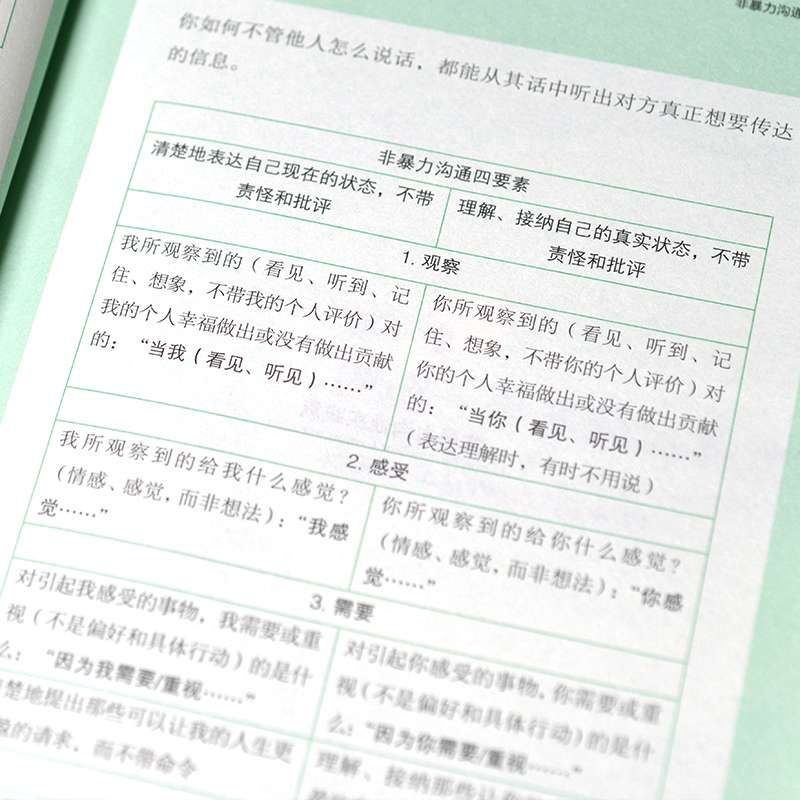 非暴力沟通
你如何不管他人怎么说话，都能从其话中听出对方真正想要传达
的信息。
非暴力沟通四要素
清楚地表达自己现在的状态，不带
责怪和批评
理解、接纳自己的真实状态，不带
责怪和批评
1. 观察
我所观察到的（看见、听到、记
住、想象，不带我的个人评价）对
我的个人幸福做出或没有做出贡献
的：“当我（看见、听见）……”
你所观察到的（看见、听到、记
住、想象，不带你的个人评价）对
你的个人幸福做出或没有做出贡献
的：“当你（看见、听见）……”
（表达理解时，有时不用说）
2. 感受
我所观察到的给我什么感觉？
（情感、感觉，而非想法）：“我感
觉……”
你所观察到的给你什么感觉？
（情感、感觉，而非想法）：“你感
觉……”
3. 需要
对引起我感受的事物，我需要或重
视（不是偏好和具体行动）的是什
么：“因为我需要/重视……”
对引起你感受的事物，你需要或重
视（不是偏好和具体行动）的是什
么：“因为你需要/重视……”
楚地提出那些可以让我的人生更
的请求，而不带命令
理解、接纳那些让你